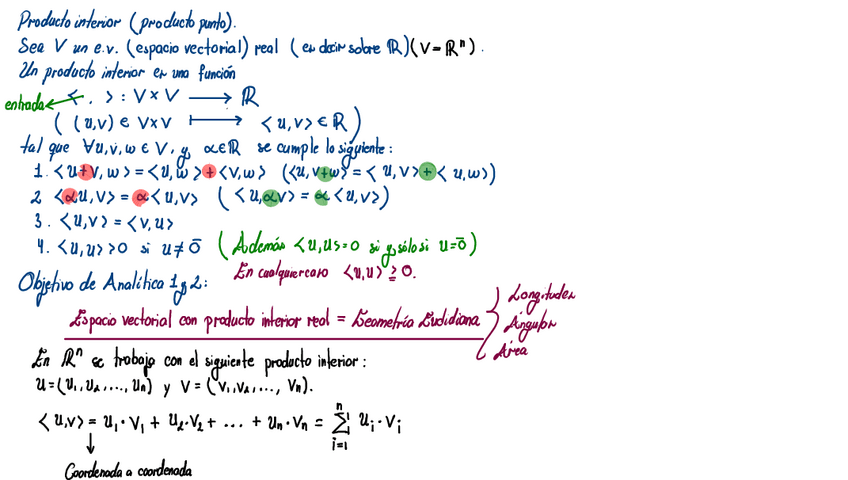 Producto interior (producto punto).
Sea V un e.v. (espacio vectorial) real (es decir sobre ℝ) (V = ℝⁿ).
Un producto interior es una función
entrada < . > : V × V ⟶ ℝ
( (u,v) ∈ V×V ⟼ <u,v> ∈ ℝ )
tal que ∀u,v,w ∈ V, y α∈ℝ se cumple lo siguiente:
1. <u+v, w> = <u,w> + <v,w> (<u,v+w> = <u,v> + <u,w>)
2 <αu,v> = α<u,v> ( <u,αv> = α <u,v>)
3. <u,v> = <v,u>
4. <u,u> > 0 si u ≠ 0̄ (Además <u,u> = 0 si y sólo si u=0̄)
En cualquier caso <u,u> ≥ 0.
Objetivo de Analítica 1 y 2:
Espacio vectorial con producto interior real = Geometría Euclidiana
Longitudes
Ángulos
Área
En ℝⁿ se trabaja con el siguiente producto interior:
u = (u₁, u₂, ..., uₙ) y v = (v₁, v₂, ..., vₙ).
<u,v> = u₁·v₁ + u₂·v₂ + ... + uₙ·vₙ = ∑ⁿᵢ₌₁ uᵢ·vᵢ
↓
Coordenada a coordenada